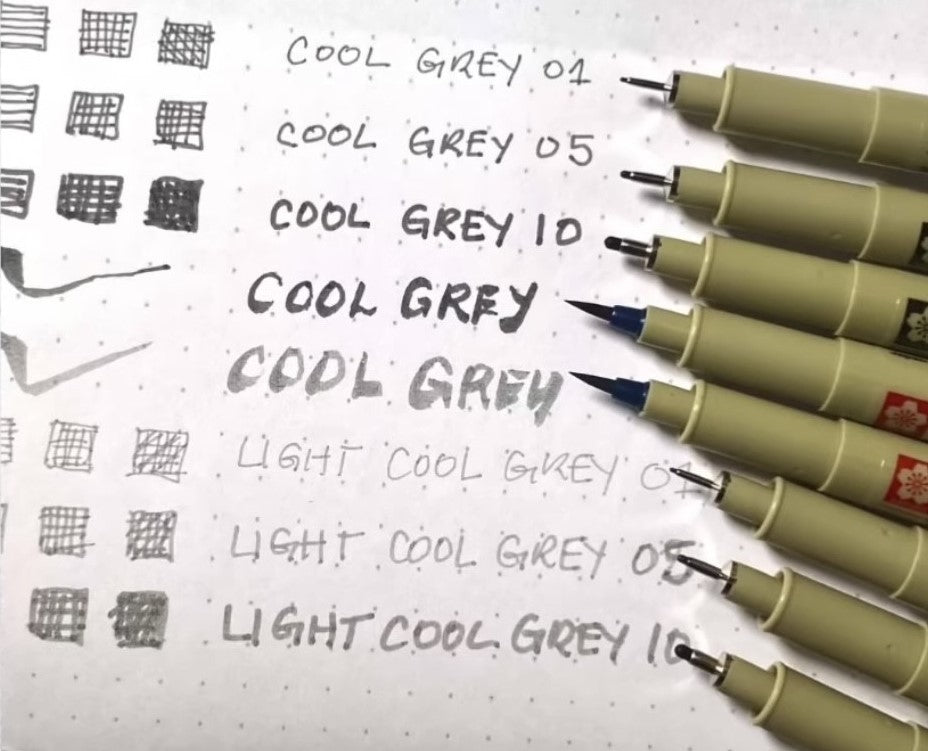 COOL GREY 01
COOL GREY 05
COOL GREY 10
COOL GREY
COOL GREY
LIGHT COOL GREY 01
LIGHT COOL GREY 05
LIGHT COOL GREY 10